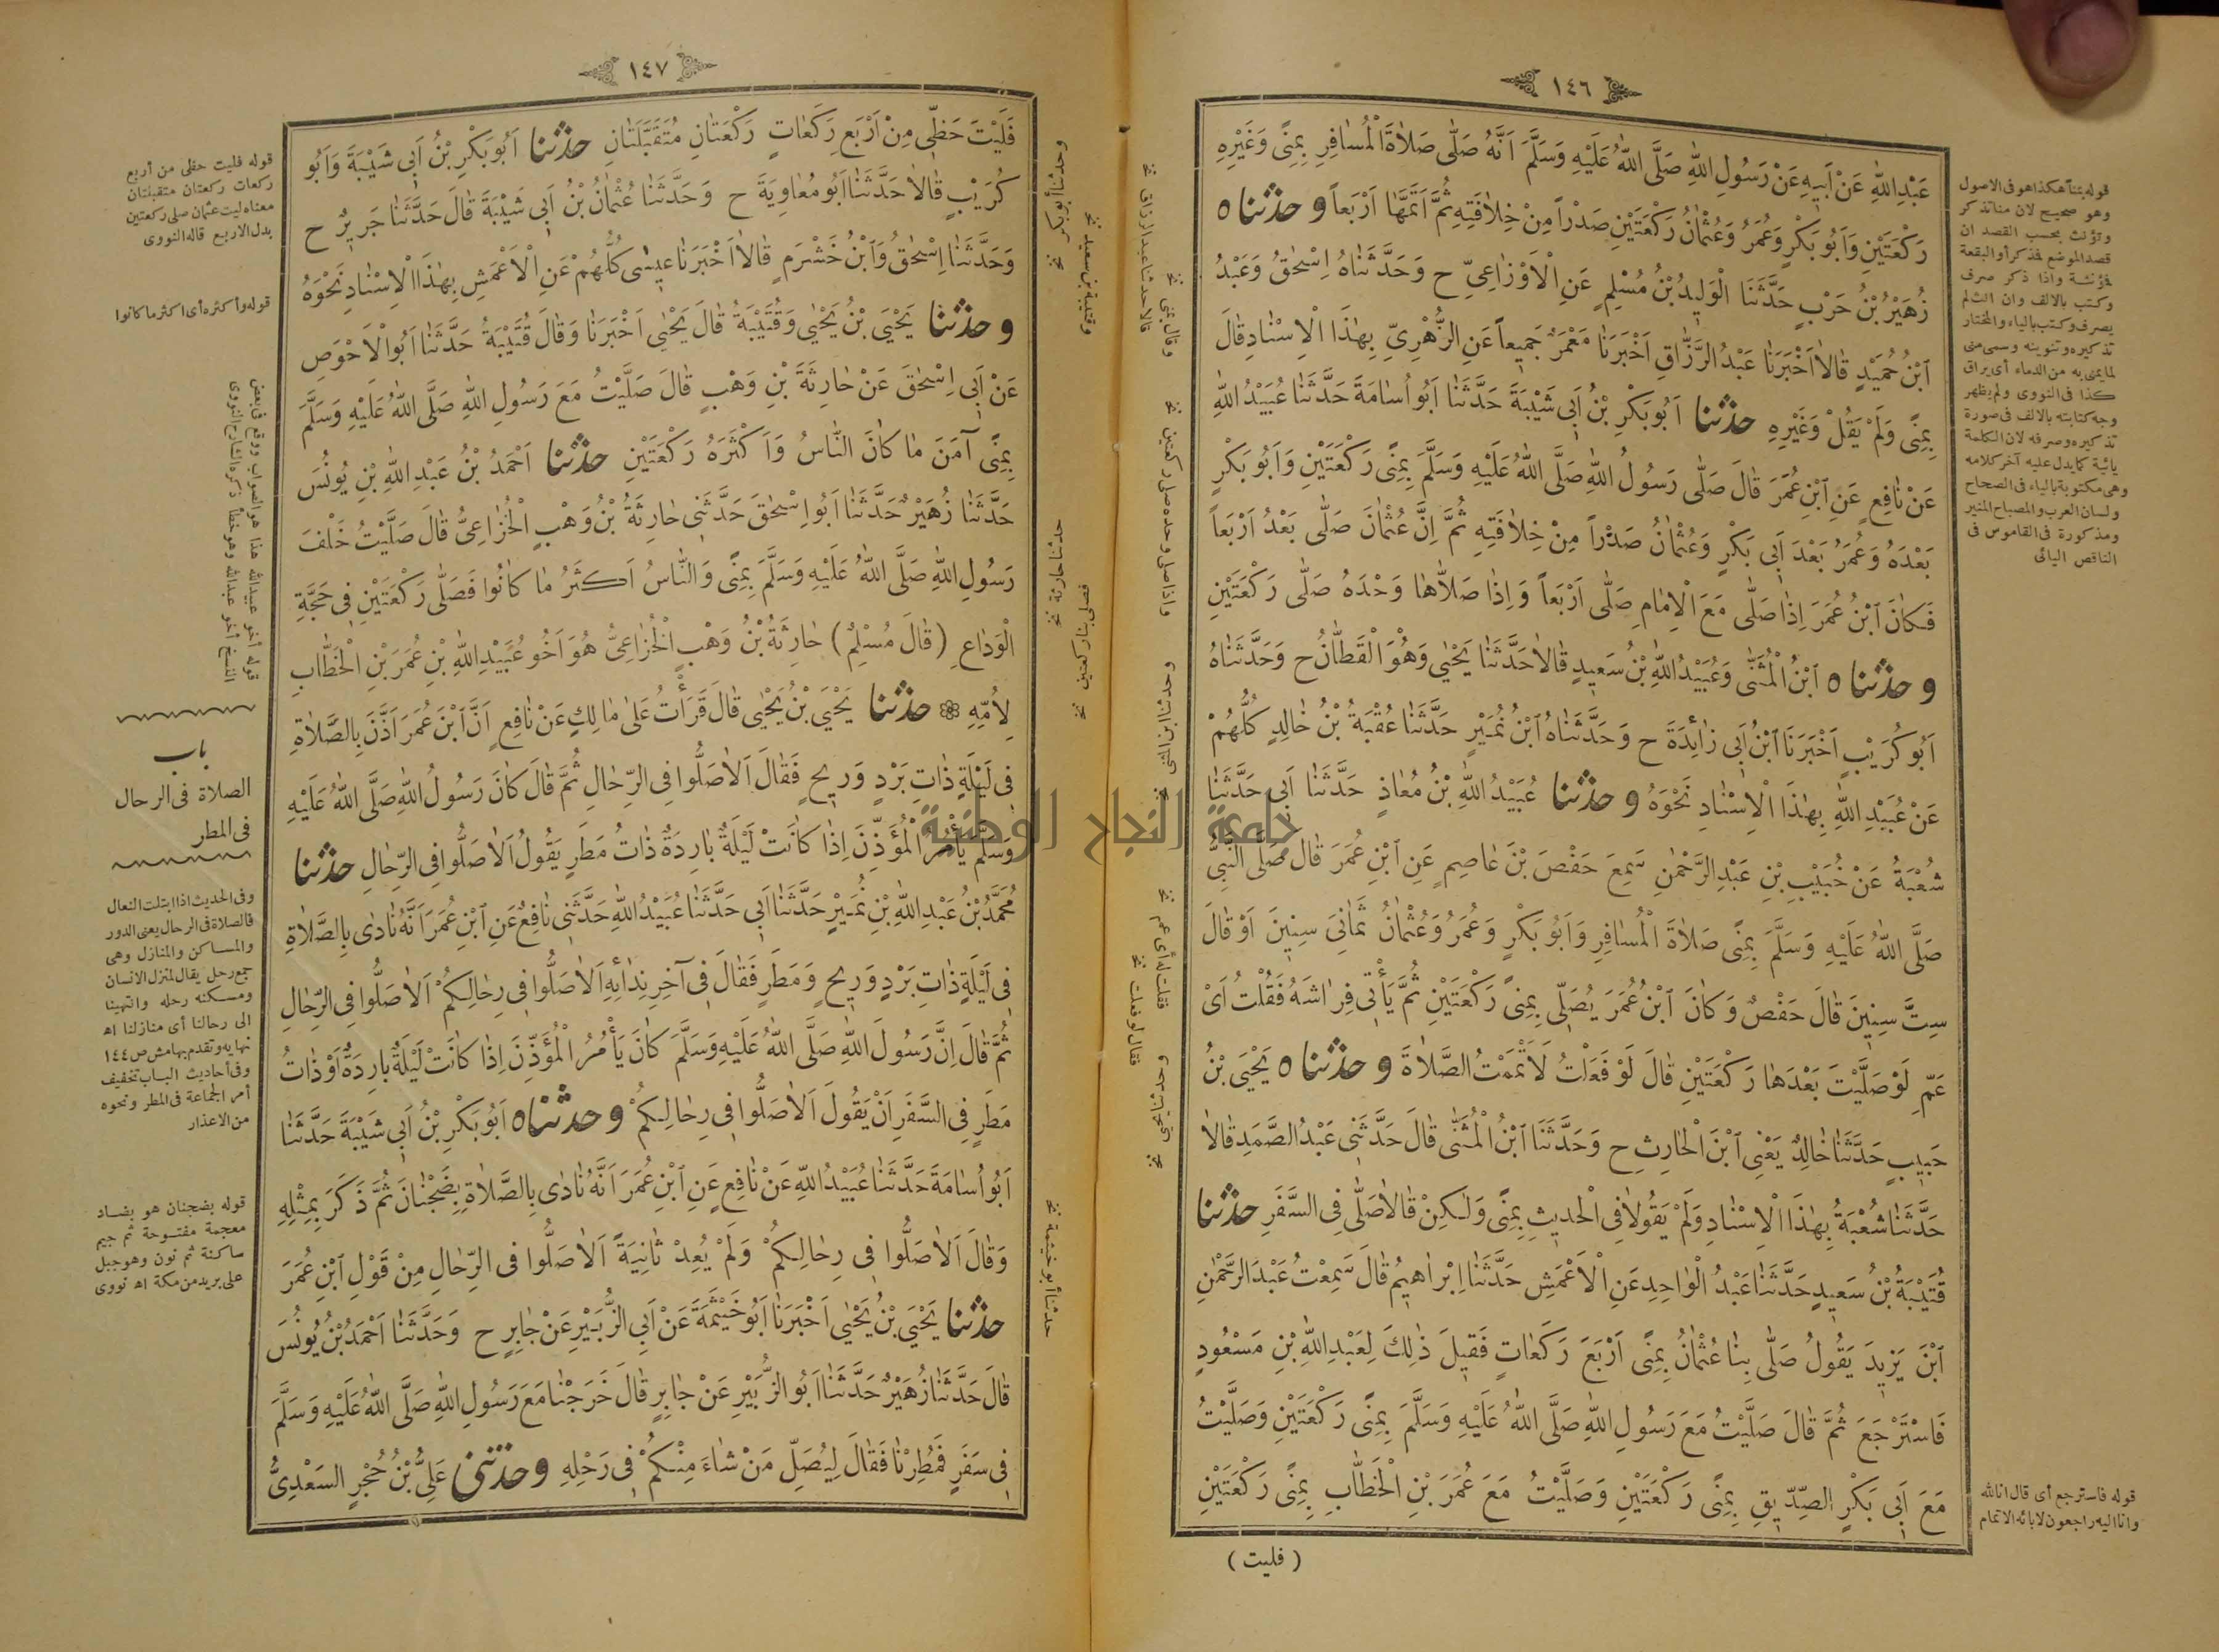 ١٤٦
عَبْدِ اللهِ عَنْ أَبِيهِ عَنْ رَسُولِ اللهِ صَلَّى اللهُ عَلَيْهِ وَسَلَّمَ أَنَّهُ صَلَّى صَلَاةَ الْمُسَافِرِ بِمِنًى وَغَيْرِهِ
رَكْعَتَيْنِ وَأَبُو بَكْرٍ وَعُمَرُ وَعُثْمَانُ رَكْعَتَيْنِ صَدْراً مِنْ خِلَافَتِهِ ثُمَّ أَتَمَّهَا أَرْبَعاً وحدثناه
زُهَيْرُ بْنُ حَرْبٍ حَدَّثَنَا الْوَلِيدُ بْنُ مُسْلِمٍ عَنِ الْأَوْزَاعِيِّ ح وَحَدَّثَنَاهُ إِسْحٰقُ وَعَبْدُ
ابْنُ حُمَيْدٍ قَالَا أَخْبَرَنَا عَبْدُ الرَّزَّاقِ أَخْبَرَنَا مَعْمَرٌ جَمِيعاً عَنِ الزُّهْرِيِّ بِهٰذَا الْإِسْنَادِ قَالَ
بِمِنًى وَلَمْ يَقُلْ وَغَيْرِهِ حدثنا أَبُو بَكْرِ بْنُ أَبِي شَيْبَةَ حَدَّثَنَا أَبُو أُسَامَةَ حَدَّثَنَا عُبَيْدُ اللهِ
عَنْ نَافِعٍ عَنِ ابْنِ عُمَرَ قَالَ صَلَّى رَسُولُ اللهِ صَلَّى اللهُ عَلَيْهِ وَسَلَّمَ بِمِنًى رَكْعَتَيْنِ وَأَبُو بَكْرٍ
بَعْدَهُ وَعُمَرُ بَعْدَ أَبِي بَكْرٍ وَعُثْمَانُ صَدْراً مِنْ خِلَافَتِهِ ثُمَّ إِنَّ عُثْمَانَ صَلَّى بَعْدُ أَرْبَعاً
فَكَانَ ابْنُ عُمَرَ إِذَا صَلَّى مَعَ الْإِمَامِ صَلَّى أَرْبَعاً وَإِذَا صَلَّاهَا وَحْدَهُ صَلَّى رَكْعَتَيْنِ
وحدثناه ابْنُ الْمُثَنَّى وَعُبَيْدُ اللهِ بْنُ سَعِيدٍ قَالَا حَدَّثَنَا يَحْيٰى وَهُوَ الْقَطَّانُ ح وَحَدَّثَنَاهُ
أَبُو كُرَيْبٍ أَخْبَرَنَا ابْنُ أَبِي زَائِدَةَ ح وَحَدَّثَنَاهُ ابْنُ نُمَيْرٍ حَدَّثَنَا عُقْبَةُ بْنُ خَالِدٍ كُلُّهُمْ
عَنْ عُبَيْدِ اللهِ بِهٰذَا الْإِسْنَادِ نَحْوَهُ وحدثنا عُبَيْدُ اللهِ بْنُ مُعَاذٍ حَدَّثَنَا أَبِي حَدَّثَنَا
شُعْبَةُ عَنْ خُبَيْبِ بْنِ عَبْدِ الرَّحْمٰنِ سَمِعَ حَفْصَ بْنَ عَاصِمٍ عَنِ ابْنِ عُمَرَ قَالَ صَلَّى النَّبِيُّ
صَلَّى اللهُ عَلَيْهِ وَسَلَّمَ بِمِنًى صَلَاةَ الْمُسَافِرِ وَأَبُو بَكْرٍ وَعُمَرُ وَعُثْمَانُ ثَمَانِيَ سِنِينَ أَوْ قَالَ
سِتَّ سِنِينَ قَالَ حَفْصٌ وَكَانَ ابْنُ عُمَرَ يُصَلِّي بِمِنًى رَكْعَتَيْنِ ثُمَّ يَأْتِي فِرَاشَهُ فَقُلْتُ أَيْ
عَمِّ لَوْ صَلَّيْتَ بَعْدَهَا رَكْعَتَيْنِ قَالَ لَوْ فَعَلْتُ لَأَتْمَمْتُ الصَّلَاةَ وحدثناه يَحْيَى بْنُ
حَبِيبٍ حَدَّثَنَا خَالِدٌ يَعْنِي ابْنَ الْحَارِثِ ح وَحَدَّثَنَا ابْنُ الْمُثَنَّى قَالَ حَدَّثَنِي عَبْدُ الصَّمَدِ قَالَا
حَدَّثَنَا شُعْبَةُ بِهٰذَا الْإِسْنَادِ وَلَمْ يَقُولَا فِي الْحَدِيثِ بِمِنًى وَلٰكِنْ قَالَا صَلَّى فِي السَّفَرِ حدثنا
قُتَيْبَةُ بْنُ سَعِيدٍ حَدَّثَنَا عَبْدُ الْوَاحِدِ عَنِ الْأَعْمَشِ حَدَّثَنَا إِبْرَاهِيمُ قَالَ سَمِعْتُ عَبْدَ الرَّحْمٰنِ
ابْنَ يَزِيدَ يَقُولُ صَلَّى بِنَا عُثْمَانُ بِمِنًى أَرْبَعَ رَكَعَاتٍ فَقِيلَ ذٰلِكَ لِعَبْدِ اللهِ بْنِ مَسْعُودٍ
فَاسْتَرْجَعَ ثُمَّ قَالَ صَلَّيْتُ مَعَ رَسُولِ اللهِ صَلَّى اللهُ عَلَيْهِ وَسَلَّمَ بِمِنًى رَكْعَتَيْنِ وَصَلَّيْتُ
مَعَ أَبِي بَكْرٍ الصِّدِّيقِ بِمِنًى رَكْعَتَيْنِ وَصَلَّيْتُ مَعَ عُمَرَ بْنِ الْخَطَّابِ بِمِنًى رَكْعَتَيْنِ
(فليت)
قوله بمنى هكذا هو فى الاصول
وهو صحيح لان منا تذكر
وتؤنث بحسب القصد ان
قصد الموضع فذكر أو البقعة
فمؤنثة واذا ذكر صرف
وكتب بالالف وان انث لم
يصرف وكتب بالياء والمختار
تذكيره وتنوينه وسمى منى
لما يمنى به من الدماء أى يراق
كذا فى النووى ولم يظهر
وجه كتابته بالالف فى صورة
تذكيره وصرفه لان الكلمة
يائية كما يدل عليه آخر كلامه
وهى مكتوبة بالياء فى الصحاح
ولسان العرب والمصباح المنير
ومذكورة فى القاموس فى
الناقص اليائى
قوله فاسترجع أى قال انا لله
وانا اليه راجعون لابائه الاتمام
قالا حدثنا عبد الرزاق نخ
وقال بمنى نخ
واذا صلى وحده صلى ركعتين نخ
وحدثنا ابن المثنى نخ
فقلت له أى عم نخ
فقال لو فعلت نخ
وحدثنا يحيى نخ
جامعة النجاح الوطنية
١٤٧
فَلَيْتَ حَظِّي مِنْ أَرْبَعِ رَكَعَاتٍ رَكْعَتَانِ مُتَقَبَّلَتَانِ حدثنا أَبُو بَكْرِ بْنُ أَبِي شَيْبَةَ وَأَبُو
كُرَيْبٍ قَالَا حَدَّثَنَا أَبُو مُعَاوِيَةَ ح وَحَدَّثَنَا عُثْمَانُ بْنُ أَبِي شَيْبَةَ قَالَ حَدَّثَنَا جَرِيرٌ ح
وَحَدَّثَنَا إِسْحٰقُ وَابْنُ خَشْرَمٍ قَالَا أَخْبَرَنَا عِيسٰى كُلُّهُمْ عَنِ الْأَعْمَشِ بِهٰذَا الْإِسْنَادِ نَحْوَهُ
وحدثنا يَحْيَى بْنُ يَحْيٰى وَقُتَيْبَةُ قَالَ يَحْيٰى أَخْبَرَنَا وَقَالَ قُتَيْبَةُ حَدَّثَنَا أَبُو الْأَحْوَصِ
عَنْ أَبِي إِسْحٰقَ عَنْ حَارِثَةَ بْنِ وَهْبٍ قَالَ صَلَّيْتُ مَعَ رَسُولِ اللهِ صَلَّى اللهُ عَلَيْهِ وَسَلَّمَ
بِمِنًى آمَنَ مَا كَانَ النَّاسُ وَأَكْثَرَهُ رَكْعَتَيْنِ حدثنا أَحْمَدُ بْنُ عَبْدِ اللهِ بْنِ يُونُسَ
حَدَّثَنَا زُهَيْرٌ حَدَّثَنَا أَبُو إِسْحٰقَ حَدَّثَنِي حَارِثَةُ بْنُ وَهْبٍ الْخُزَاعِيُّ قَالَ صَلَّيْتُ خَلْفَ
رَسُولِ اللهِ صَلَّى اللهُ عَلَيْهِ وَسَلَّمَ بِمِنًى وَالنَّاسُ أَكْثَرُ مَا كَانُوا فَصَلَّى رَكْعَتَيْنِ فِي حَجَّةِ
الْوَدَاعِ (قَالَ مُسْلِمٌ) حَارِثَةُ بْنُ وَهْبٍ الْخُزَاعِيُّ هُوَ أَخُو عُبَيْدِ اللهِ بْنِ عُمَرَ بْنِ الْخَطَّابِ
لِأُمِّهِ ❁ حدثنا يَحْيَى بْنُ يَحْيٰى قَالَ قَرَأْتُ عَلٰى مَالِكٍ عَنْ نَافِعٍ أَنَّ ابْنَ عُمَرَ أَذَّنَ بِالصَّلَاةِ
فِي لَيْلَةٍ ذَاتِ بَرْدٍ وَرِيحٍ فَقَالَ أَلَا صَلُّوا فِي الرِّحَالِ ثُمَّ قَالَ كَانَ رَسُولُ اللهِ صَلَّى اللهُ عَلَيْهِ
وَسَلَّمَ يَأْمُرُ الْمُؤَذِّنَ إِذَا كَانَتْ لَيْلَةٌ بَارِدَةٌ ذَاتُ مَطَرٍ يَقُولُ أَلَا صَلُّوا فِي الرِّحَالِ حدثنا
مُحَمَّدُ بْنُ عَبْدِ اللهِ بْنِ نُمَيْرٍ حَدَّثَنَا أَبِي حَدَّثَنَا عُبَيْدُ اللهِ حَدَّثَنِي نَافِعٌ عَنِ ابْنِ عُمَرَ أَنَّهُ نَادٰى بِالصَّلَاةِ
فِي لَيْلَةٍ ذَاتِ بَرْدٍ وَرِيحٍ وَمَطَرٍ فَقَالَ فِي آخِرِ نِدَائِهِ أَلَا صَلُّوا فِي رِحَالِكُمْ أَلَا صَلُّوا فِي الرِّحَالِ
ثُمَّ قَالَ إِنَّ رَسُولَ اللهِ صَلَّى اللهُ عَلَيْهِ وَسَلَّمَ كَانَ يَأْمُرُ الْمُؤَذِّنَ إِذَا كَانَتْ لَيْلَةٌ بَارِدَةٌ أَوْ ذَاتُ
مَطَرٍ فِي السَّفَرِ أَنْ يَقُولَ أَلَا صَلُّوا فِي رِحَالِكُمْ وحدثناه أَبُو بَكْرِ بْنُ أَبِي شَيْبَةَ حَدَّثَنَا
أَبُو أُسَامَةَ حَدَّثَنَا عُبَيْدُ اللهِ عَنْ نَافِعٍ عَنِ ابْنِ عُمَرَ أَنَّهُ نَادٰى بِالصَّلَاةِ بِضَجْنَانَ ثُمَّ ذَكَرَ بِمِثْلِهِ
وَقَالَ أَلَا صَلُّوا فِي رِحَالِكُمْ وَلَمْ يُعِدْ ثَانِيَةً أَلَا صَلُّوا فِي الرِّحَالِ مِنْ قَوْلِ ابْنِ عُمَرَ
حدثنا يَحْيَى بْنُ يَحْيٰى أَخْبَرَنَا أَبُو خَيْثَمَةَ عَنْ أَبِي الزُّبَيْرِ عَنْ جَابِرٍ ح وَحَدَّثَنَا أَحْمَدُ بْنُ يُونُسَ
قَالَ حَدَّثَنَا زُهَيْرٌ حَدَّثَنَا أَبُو الزُّبَيْرِ عَنْ جَابِرٍ قَالَ خَرَجْنَا مَعَ رَسُولِ اللهِ صَلَّى اللهُ عَلَيْهِ وَسَلَّمَ
فِي سَفَرٍ فَمُطِرْنَا فَقَالَ لِيُصَلِّ مَنْ شَاءَ مِنْكُمْ فِي رَحْلِهِ وحدثنى عَلِيُّ بْنُ حُجْرٍ السَّعْدِيُّ
وحدثنا أبو بكر نخ
وقتيبة بن سعيد نخ
حدثنا حارثة نخ
فصلى بنا ركعتين نخ
حدثنا أبو خيثمة نخ
قوله فليت حظى من أربع
ركعات ركعتان متقبلتان
معناه ليت عثمان صلى ركعتين
بدل الاربع قاله النووى
قوله وأكثره أى اكثر ما كانوا
قوله أخو عبيدالله هذا هو الصواب ووقع فى بعض
النسخ أخو عبدالله وهو خطأ ذكره الشارح النووى
باب
الصلاة فى الرحال
فى المطر
وفى الحديث اذا ابتلت النعال
فالصلاة فى الرحال يعنى الدور
والمساكن والمنازل وهى
جمع رحل يقال لمنزل الانسان
ومسكنه رحله وانتهينا
الى رحالنا أى منازلنا اه
نهايه وتقدم بهامش ص ١٤٤
وفى أحاديث الباب تخفيف
أمر الجماعة فى المطر ونحوه
من الاعذار
قوله بضجنان هو بضاد
معجمة مفتوحة ثم جيم
ساكنة ثم نون وهو جبل
على بريد من مكة اه نووى